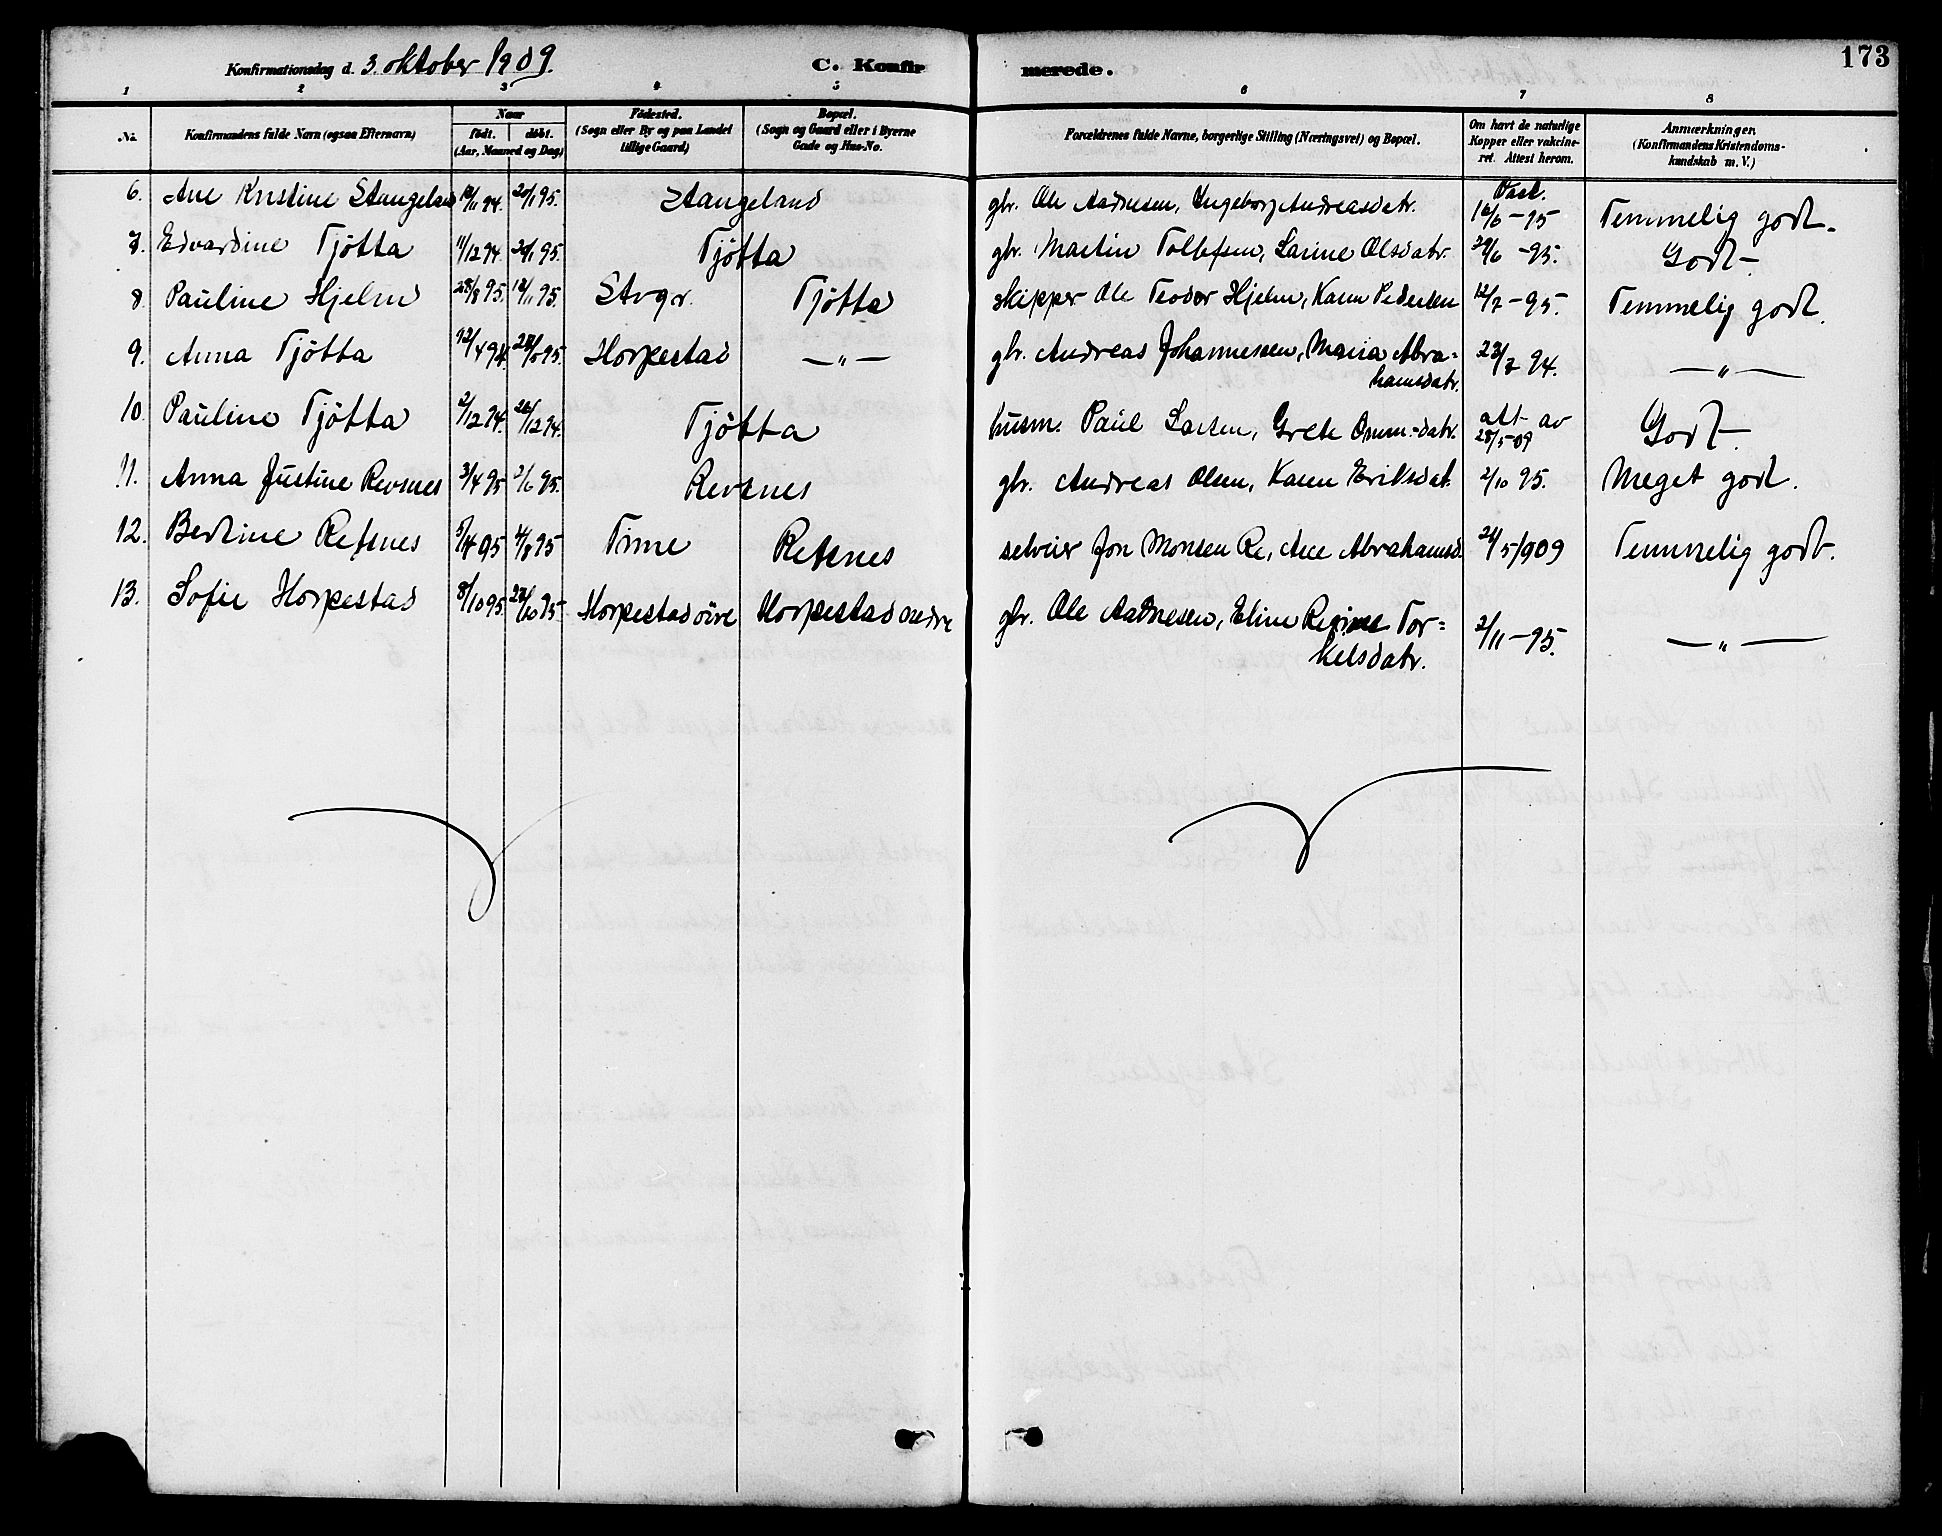 173
Konfirmationsdag d. 3. oktober 1909. C. Konfirmerede.
1 2 3 4 5 6 7 8
No. Konfirmandens fulde Navn (ogsaa Efternavn) Naar født. døbt. (Aar, Maaned og Dag) Fødested. (Sogn eller By og paa Landet tillige Gaard) Bopæl. (Sogn og Gaard eller i Byerne Gade og Hus-No. Forældrenes fulde Navne, borgerlige Stilling (Næringsvei) og Bopæl. Om havt de naturlige Kopper eller vakcineret. Attest herom. Anmærkninger. (Konfirmandens Kristendomskundskab m. V.)
6. Ane Kristine Stangeland 20/1 95. Stangeland gbr. Ole Aadnesen, Ingeborg Andreasdatr. Vacc. 16/6 - 95 Temmelig godt.
7. Edvardine Tjötta 11/12 94. 20/1 95. Tjötta gbr. Martin Tollefsen, Sarine Olsdatr. 29/6 - 95. Godt.
8. Pauline Hjelm 28/8 95. Stvgr. Tjötta skipper Ole Teodor Hjelm, Karen Pedersen 12/7 - 95. Temmelig godt.
9. Anna Tjötta 12/4 94. Horpestad —"— gbr. Andreas Johannessen, Maria Abra-
hamsdatr. 23/7 94. —"—
10. Pauline Tjötta 2/12 94. 26/12 94. Tjötta husm. Paul Larsen, Grete Omm.-datr. att av 28/5-09 Godt.
11. Anna Justine Revsnes 3/4 95 2/6 95. Revsnes gbr. Andreas Olsen, Karen Eriksdat. 2/10 95. Meget godt.
12. Bertine Refsnes 5/4 95 4/8 95 Time Refsnes selveier Jon Monsen Re, Ane Abrahamsd. 24/5 1909 Temmelig godt.
13. Sofie Horpestad 8/10 95 Horpestad övre Horpestad nedre gbr. Ole Aadnesen, Eline Regine Tor-
kelsdatr. 2/11 - 95. —"—